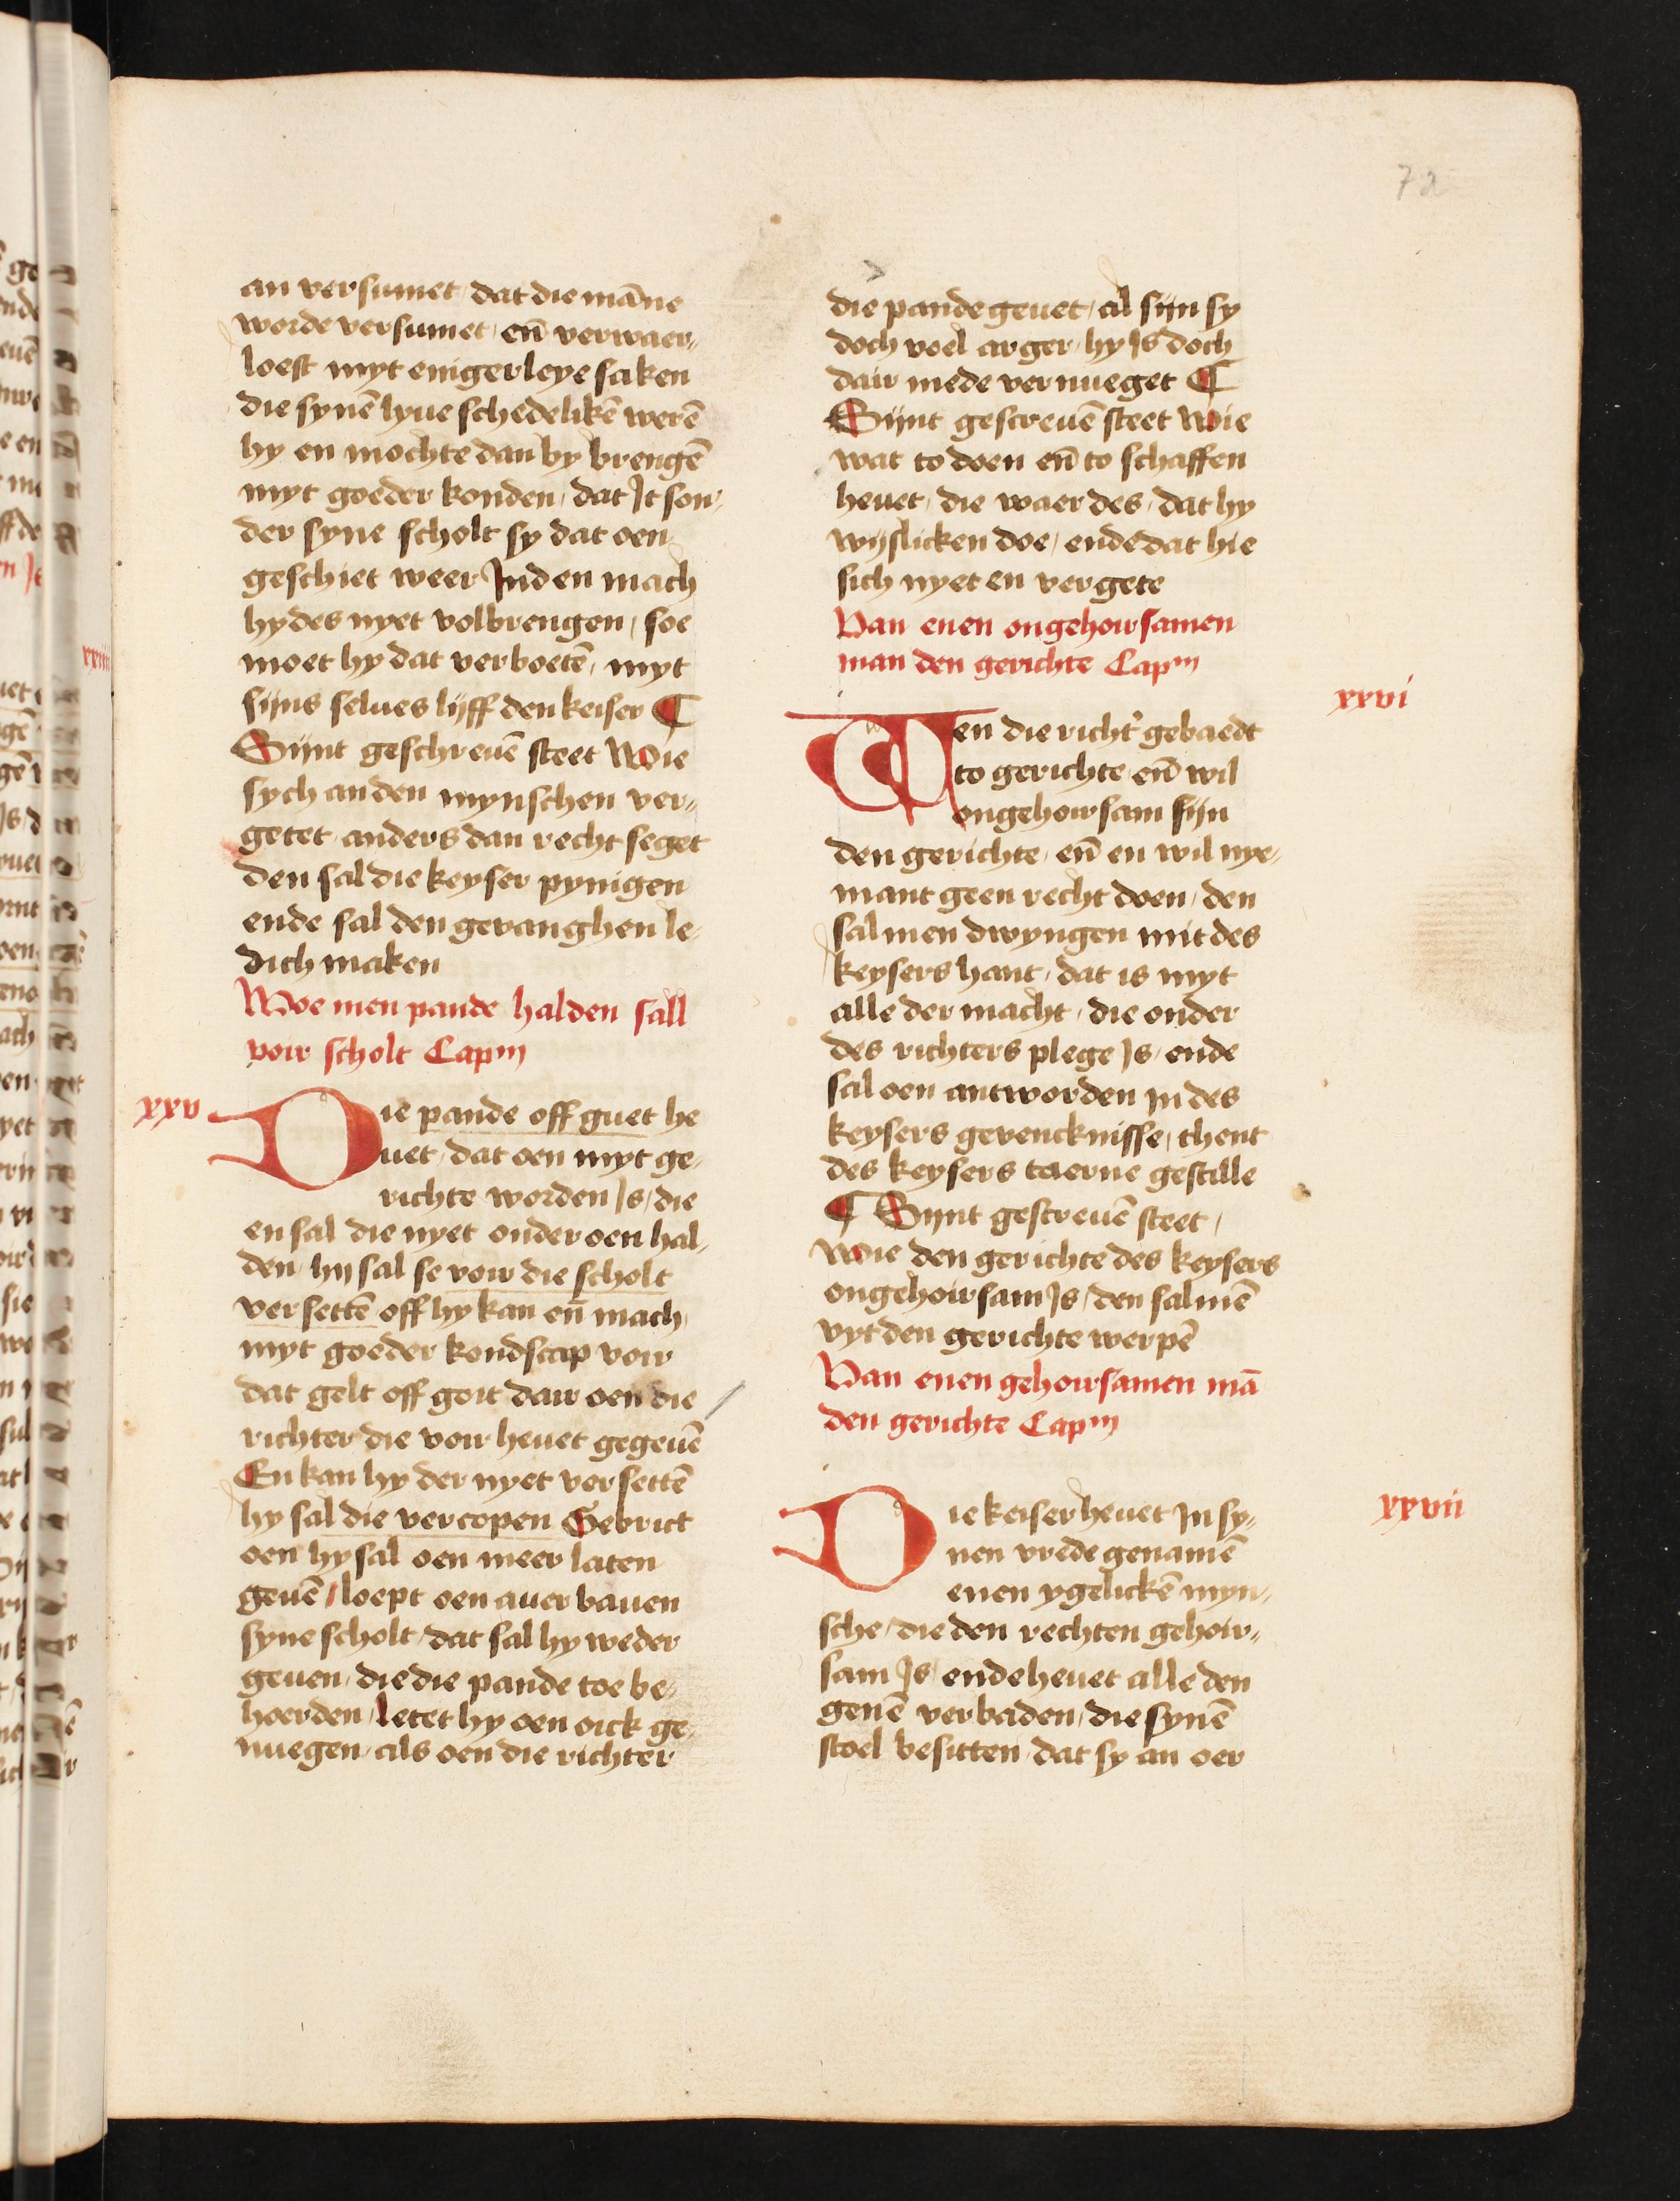 72
an versumet dat die māne
worde versumet, en̄ verwaer„
loest myt enigerleye saken
die synē lyue schedelikē werē
hy en mochte dan by brengē
myt goeder konden, dat It son„
der syne scholt sy dat oen
geschiet weer Ind en mach
hy des nyet volbrengen, soe
moet hy dat verboetē, myt
sijns selues lijff den keiser ¶
Sijnt geschreuē steet Wie
sych an den mynschen ver„
getet anders dan recht seget
den sal die keyser pynigen
ende sal den gevanghen le„
dich maken
Woe men pande halden sall
voir scholt Capm
xxv
Die pande off guet he
uet, dat oen myt ge„
richte worden Is, die
en sal die nyet onder oen hal„
den, hij sal se voir die scholt
versettē off hy kan en̄ mach
myt goeder kondscap voir
dat gelt off goit dair oen die /
richter die voir heuet gegeuē
En kan hy der nyet versettē
hy sal die vercopen Gebrict
oen hy sal oen meer laten
geuē / loept oen auer bauen
syne scholt, dat sal hy weder
geuen, die die pande toe be„
hoerden, letet hy oen oick ge„
nuegen, als oen die richter
die pande geuet, al sijn sy
doch voel arger, hy Is doch
dair mede vernueget ¶
Sijnt gescreuē steet Wie
wat to doen en̄ to schaffen
heuet, die waer des, dat hy
wijslicken doe, ende dat hie
sich nyet en vergete
Van enen ongehoirsamen
man den gerichte Capm
xxvi
Wen die richt' gebaedt
to gerichte en̄ wil
ongehoirsam sijn
den gerichte, en̄ en wil nye„
mant geen recht doen, den
sal men dwyngen mit des
keysers hant, dat is myt
alle der macht, die onder
des richters plege Is, ende
sal oen antworden In des
keysers gevencknisse, thent
des keysers taerne gestille
¶ Sijnt gescreuē steet,
Wie den gerichte des keysers
ongehoirsam Is, den sal mē
vyt den gerichte werpē
Van enen gehoirsamen mā
den gerichte Capm
xxvii
Die keiser heuet In sy„
nen vrede genamē
enen ygelickē myn„
sche, die den rechten gehoir„
sam Is, ende heuet alle den
genē verbaden, die synē
stoel besitten, dat sy an oer